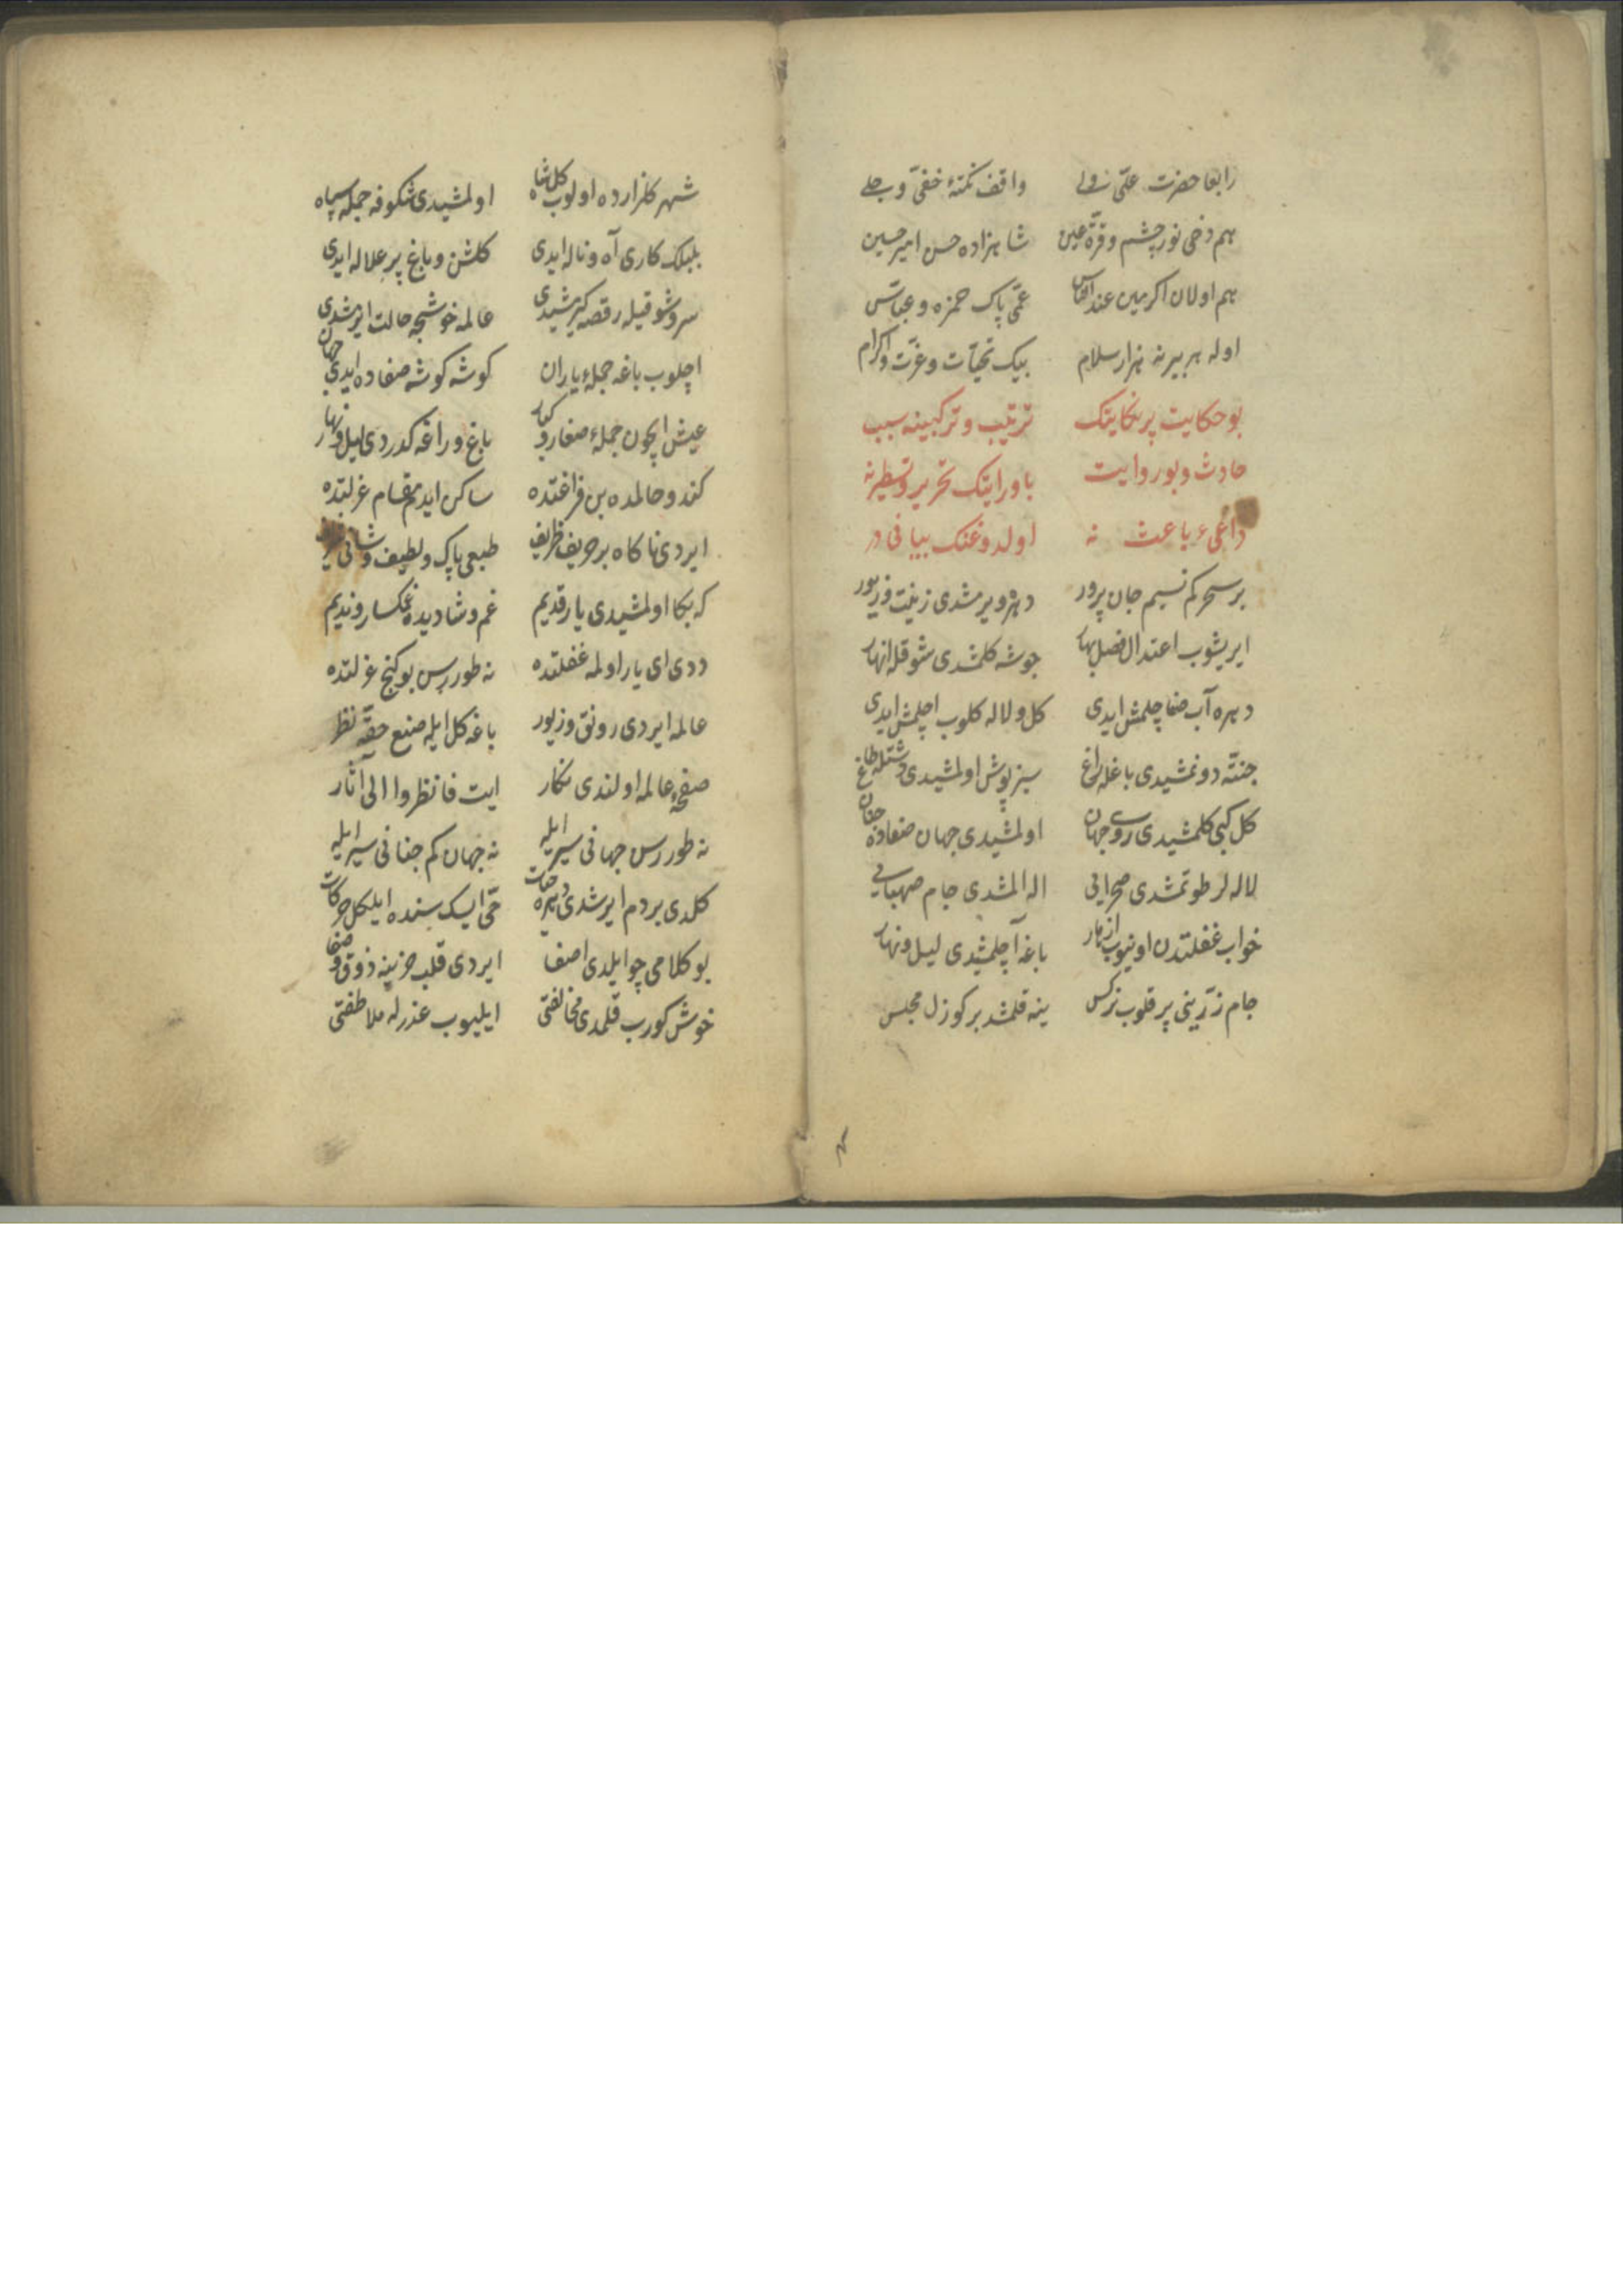 رابعا حضرت علی ولی واقف نکتهٔ خفی و جلی
هم دخی نور چشم و قرة عین شاهزاده حسن امیر حسین
هم اولان اکرمین عند الناس عمّی پاک حمزه و عباس
اوله هر بیرنه هزار سلام بیک تحیّات و عزّت و اکرام
بو حکایت پر نکایتک ترتیب و ترکیبینه سبب
حادث و بو روایت باورایتک تحریر و تسطیرنه
داعیء باعث نه اولدوغنک بیانی در
بر سحر کم نسیم جان پرور دهره ویرمشدی زینت و زیور
ایریشوب اعتدال فصل بهار جوشه کلمشدی شوقله انهار
دهره آب صفا چلمش ایدی کل و لاله کلوب اچلمش ایدی
جنته دونمشیدی باغله راغ سبز پوش اولمشیدی دشتله طاغ
کل کبی کلمشیدی روی جهان اولمشیدی جهان صفاده جنان
لاله لر طوتمشدی صحرایی اله المشدی جام صهبایی
خواب غفلتدن اویوب ازهار باغه آچلمشیدی لیل و نهار
جام زرّینی پر قلوب نرکس ینه قلمشد بر کوزل مجلس
شهر کلزارده اولوب کل شاه اولمشیدی شکوفه جمله سپاه
بلبلک کاری آه و ناله ایدی کلشن و باغ پر علاله ایدی
سرو شوقیله رقصه کیرمشیدی عالمه خوشجه حالت ایرمشدی
اچلوب باغه جملهٔ یاران کوشه کوشه صفاده ایدی جهان
عیش ایچون جملهٔ صغار و کبار باغ و راغه کدردی لیل و نهار
کندو حالمده بن فراغتده ساکن ایدم مقام عزلتده
ایردی ناکاه بر حریف ظریف طبعی پاک و لطیف و شانی
که بکا اولمشیدی یار قدیم غم و شادیده غمکسار و ندیم
ددی ای یار اولمه غفلتده نه طوررسن بو کنج عزلتده
عالمه ایردی رونق و زیور باغه کل ایله صنع حقّه نظر
صفحهٔ عالمه اولندی نکار ایت فانظروا الی آثار
نه طوررسن جهانی سیر ایله نه جهان کم جنانی سیر ایله
کلدی بر دم ایرشدی دهره حیات حی ایسک سنده ایلکل حرکات
بو کلامی چو ایلدی اصغا ایردی قلب حزینه ذوق و صفا
خوش کورب قلمدی مخالفتی ایلیوب عذرله ملاطفتی